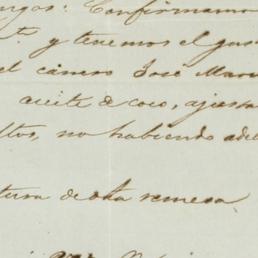 Confirmamo
y tenemos el gus
el cánero José Mar
aceite de coco, ajusta
ltos, no habiendo ade
tura de esta remesa